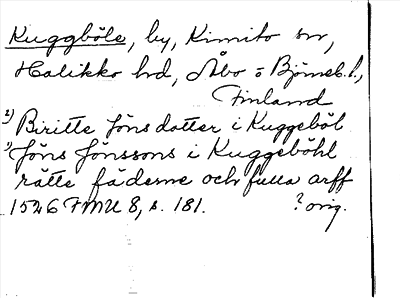 Kuggböle, by, Kimito sn,
Halikko hd, Åbo o Björneb. l.,
Finland
2) Biritte Jöns dotter i Kuggeböl
1) Jöns Jönssons i Kuggeböhl
rätte fäderne och fulla arff
1526 FMU 8, s. 181. ? orig.